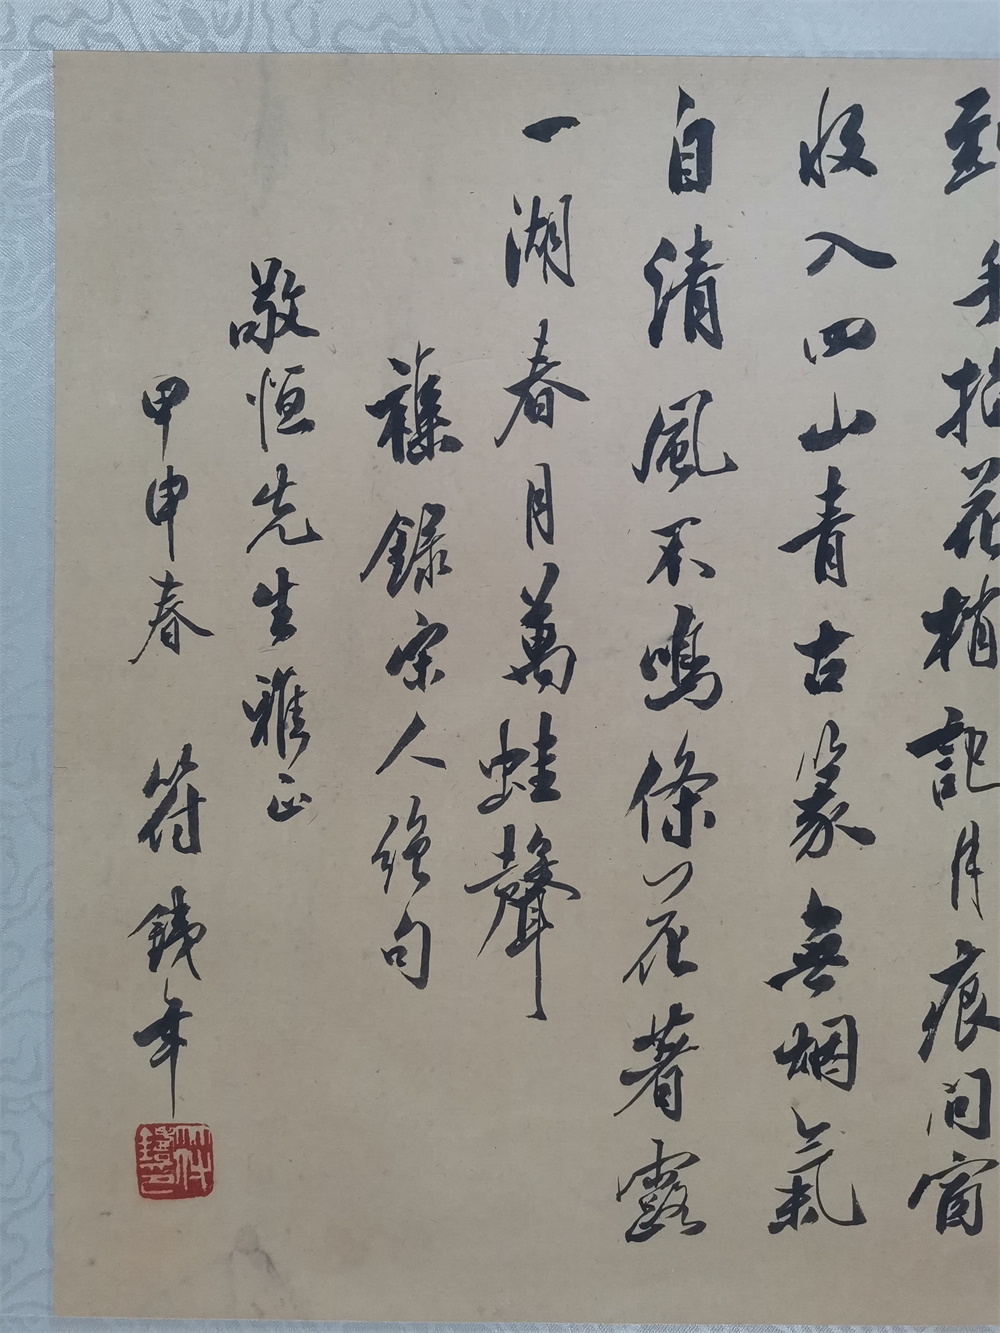 手掐花梢記月痕窗
收入四山青古篆無烟氣
自清風不鳴條花著露
一湖春月萬蛙聲
襍錄宋人絕句
敬恒先生雅正
甲申春 符銕年